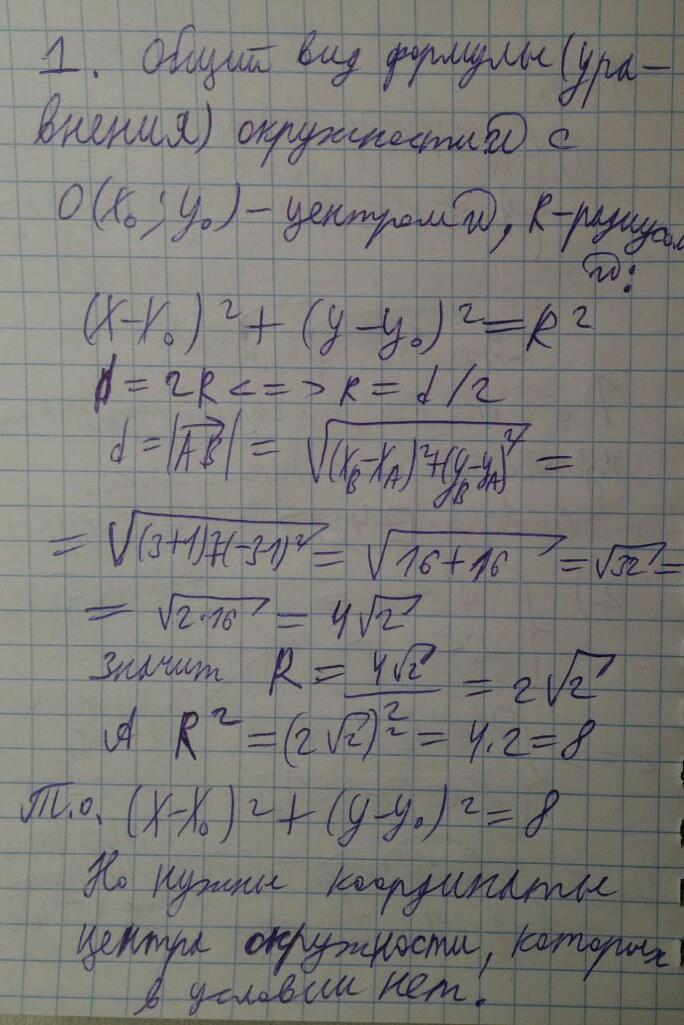 1. Общий вид формулы (ура-
внения) окружности w с
O(x₀; y₀) – центром w, R – радиусом
w:
(x-x₀)² + (y-y₀)² = R²
d = 2R <=> R = d/2
d = |AB| = √(x_B-x_A)²+(y_B-y_A)² =
= √(3+1)²+(-3-1)² = √16+16 = √32 =
= √2·16 = 4√2
Значит R = 4√2/2 = 2√2
А R² = (2√2)² = 4·2 = 8
Т.о. (x-x₀)² + (y-y₀)² = 8
Но нужны координаты
центра окружности, которых
в условии нет.